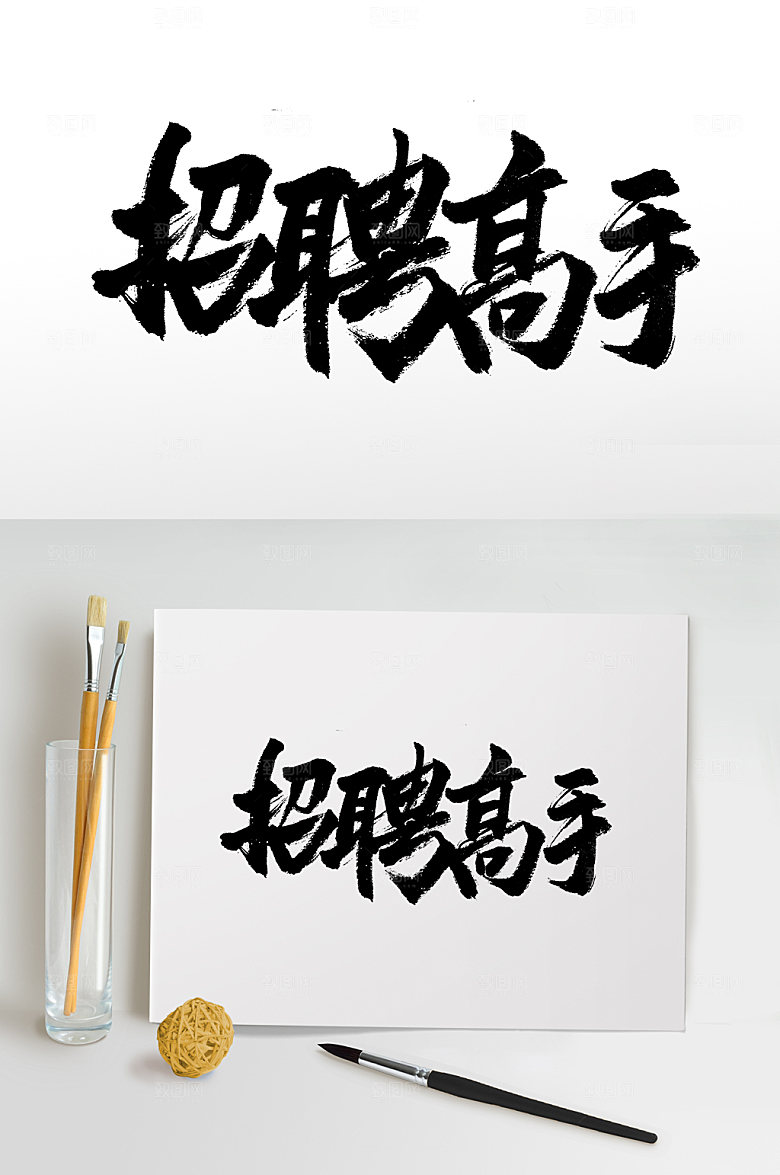 招聘高手
招聘高手